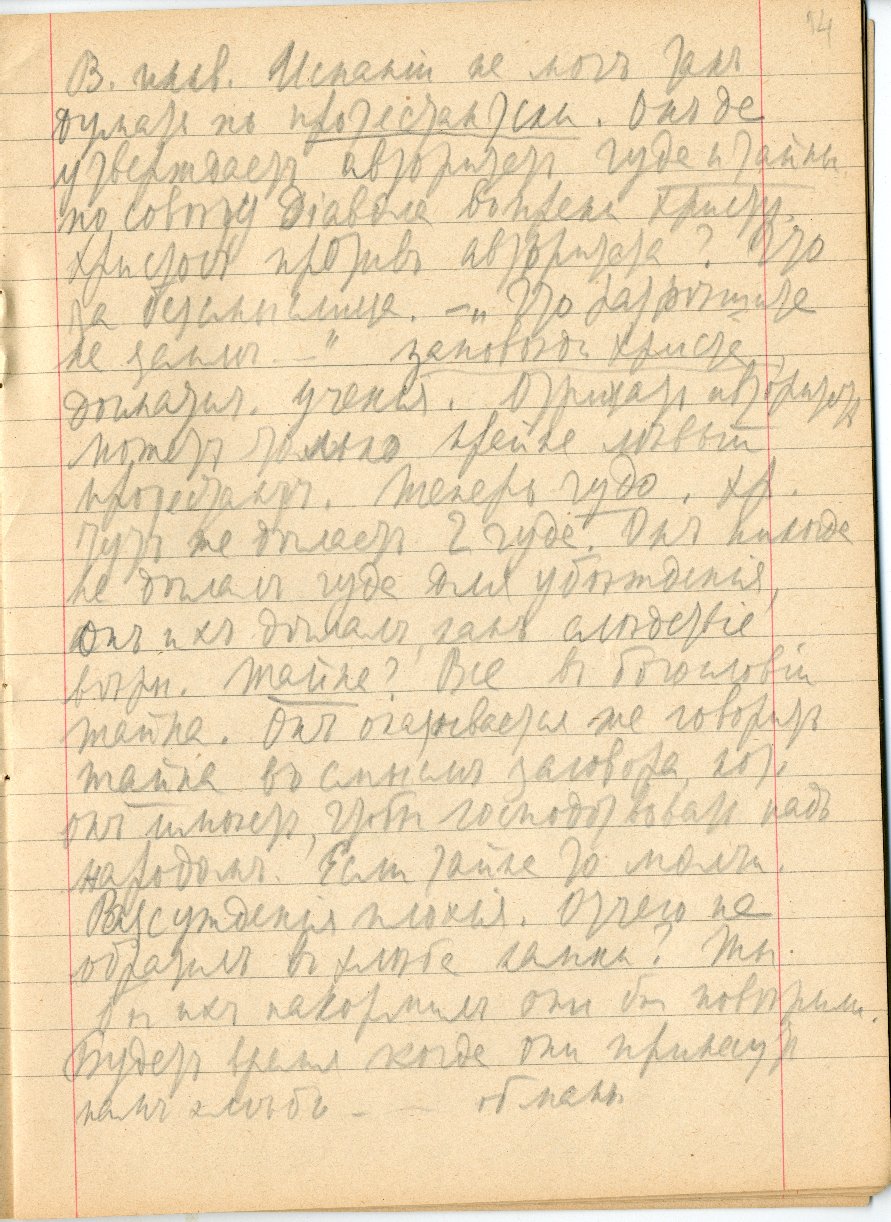 14
В. инкв. Испаніи не могъ такъ
думать по протестантски. Онъ де
утверждаетъ авторитетъ чуда и тайны
по совѣту Діавола вопреки Христу.
Христосъ противъ авторитета? Что
за безсмыслица. — „Что разрѣшите
на земли —" заповѣди Христа,
догматич. ученія. Отрицать авторитетъ
можетъ только крайне лѣвый
протестантъ. Теперь чудо. Хр.
тутъ же дѣлаетъ 2 чуда. Онъ никогда
не дѣлалъ чуда для убѣжденія,
Онъ ихъ дѣлалъ, какъ слѣдствіе
вѣры. Тайна? Все въ богословіи
тайна. Онъ оказывается же говоритъ
тайна въ смыслѣ заговора, кот.
онъ имѣетъ, чтобы господствовать надъ
народомъ. Если тайна то молчи.
Разсужденія плохія. Отчего не
обратилъ въ хлѣба камни? Ты.
бы ихъ накормилъ они бы повѣрили.
Будетъ время когда они принесутъ
намъ хлѣбы — — обманъ